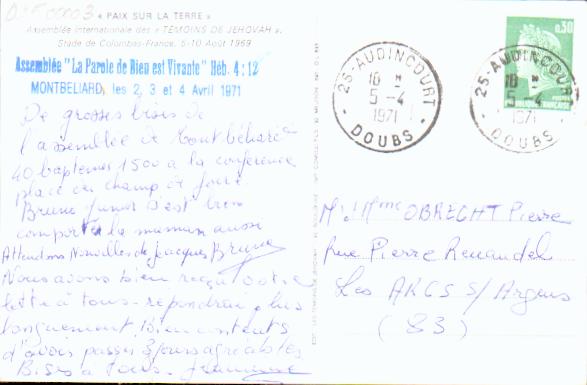 « PAIX SUR LA TERRE »
Assemblée internationale des « TÉMOINS DE JÉHOVAH ».
Stade de Colombes-France, 5-10 Août 1969
Assemblée "La Parole de Dieu est Vivante" Héb. 4:12
MONTBELIARD, les 2, 3 et 4 Avril 1971
De grosses bises de
l'assemblée de Montbéliard
40 baptemes 1500 a la conférence
place du champ de foire
Bruno Junior s'est bien
comporté la maman aussi
Attendons Nouvelles de Jacques Bruno
Nous avons bien reçu votre
lettre à tous. répondrai plus
longuement. Bien contents
d'avoir passés 3 jours agréables
Bises à tous.
25-AUDINCOURT
10 H
5-4
1971
DOUBS
25-AUDINCOURT
10 H
5-4
1971
DOUBS
0,30
M. Mme OBRECHT Pierre
Rue Pierre Renaudel
Les ARCS S/ Argens
(83)